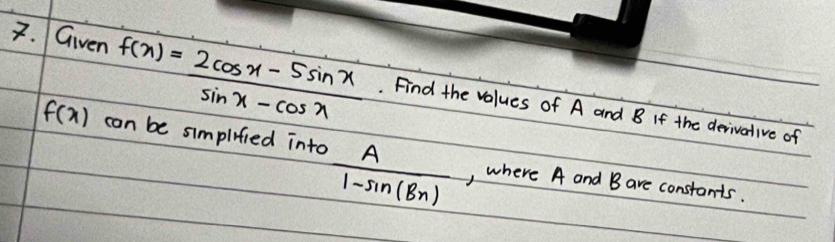 7. Given f(x) = (2cosx - 5sinx)/(sinx - cosx). Find the values of A and B if the derivative of
f(x) can be simplified into A/(1-sin(Bx)), where A and B are constants.